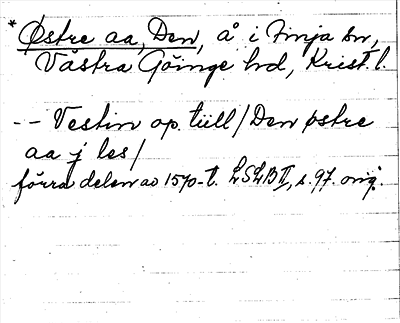 *Østre aa, Den, å i Finja sn,
Västra Göinge hd, Krist. l.
-- Vestin op. tiill / Den østre
aa j les /
förra delen av 1570-t. LSLB II, s. 97. orig.